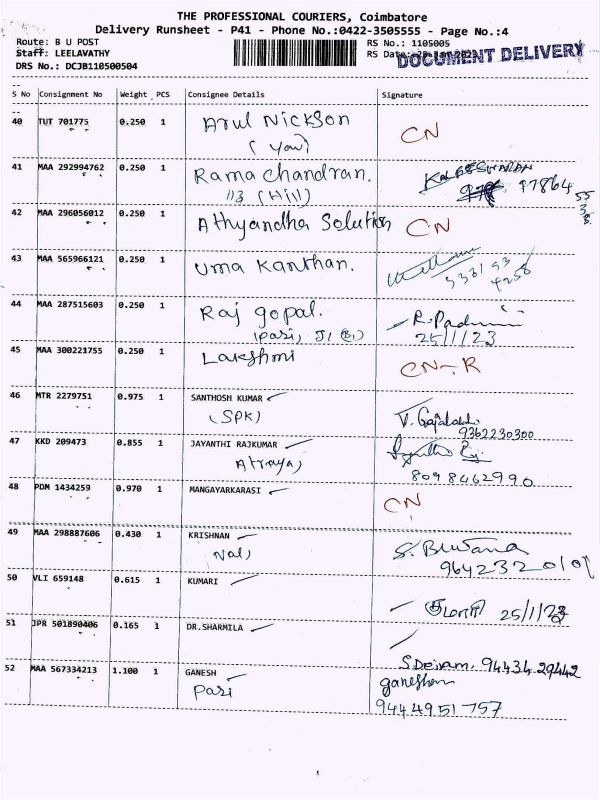 THE PROFESSIONAL COURIERS, Coimbatore
Delivery Runsheet - P41 - Phone No.:0422-3505555 - Page No.:4
Route: B U POST
RS No.: 1105005
Staff: LEELAVATHY
RS Date:
DOCUMENT DELIVERY
DRS No.: DCJB110500504
S No Consignment No Weight PCS Consignee Details Signature
40 TUT 701775 0.250 1 Arul Nickson CN
41 MAA 292994762 0.250 1 Rama chandran.
113 (Hill)
42 MAA 296056012 0.250 1 Athyandha Solution CN
43 MAA 565966121 0.250 1 Uma Kanthan.
44 MAA 287515603 0.250 1 Raj gopal. R. Padmini
25/1/23
45 MAA 300221755 0.250 1 Lakshmi CN-R
46 MTR 2279751 0.975 1 SANTHOSH KUMAR
(SPK)
9362230300
47 KKD 209473 0.855 1 JAYANTHI RAJKUMAR
8098462990
48 PDM 1434259 0.970 1 MANGAYARKARASI CN
49 MAA 298887606 0.430 1 KRISHNAN
50 VLI 659148 0.615 1 KUMARI குமாரி 25/1/23
51 JPR 501890406 0.165 1 DR.SHARMILA
94434 29442
52 MAA 567334213 1.100 1 GANESH
Pari
9444951757